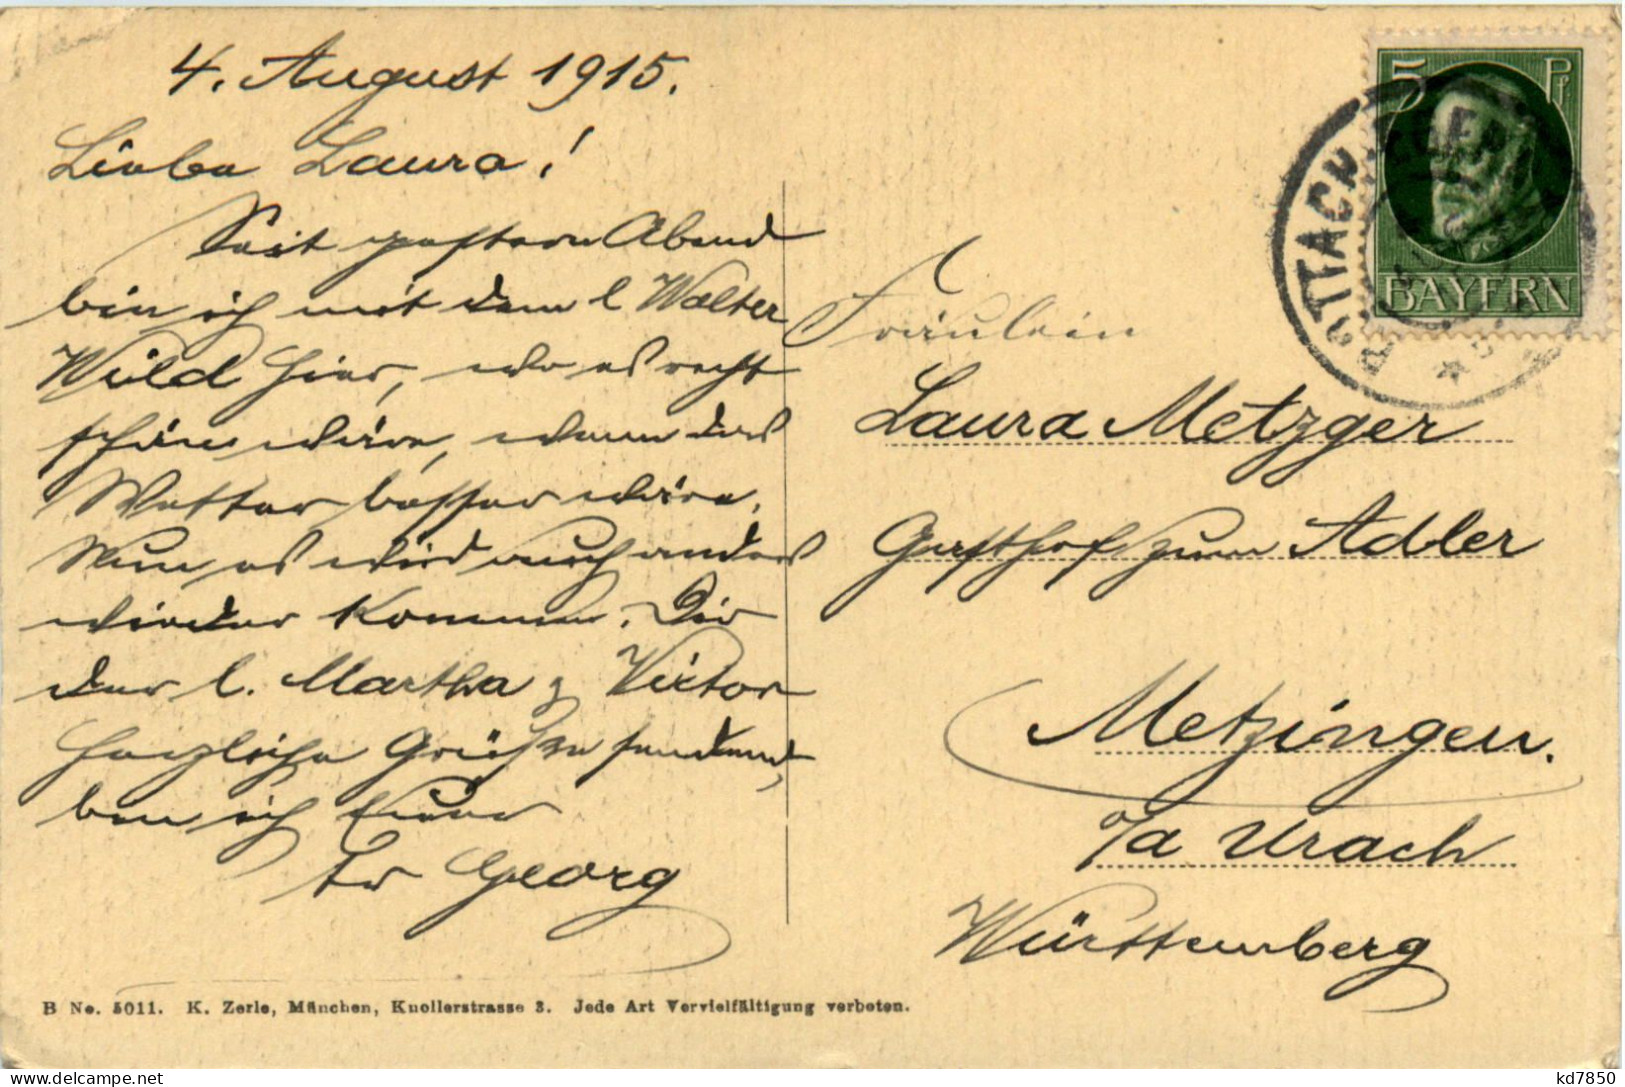 4. August 1915.
Liebe Laura!
Seit gestern Abend
bin ich mit dem l Walter
Wild hier, wo es recht
schön wäre, wenn das
Wetter besser wäre.
Nun es wird auch anders
wieder kommen. Dir
der l. Martha & Victor
herzliche Grüße sendend,
bin ich Euer
Georg
B No. 5011. K. Zerle, München, Knollerstrasse 3. Jede Art Vervielfältigung verboten.
5 Pf
BAYERN
ROTTACH
Fräulein
Laura Metzger
Gasthof zum Adler
Metzingen.
o/a Urach
Württemberg
kd7850